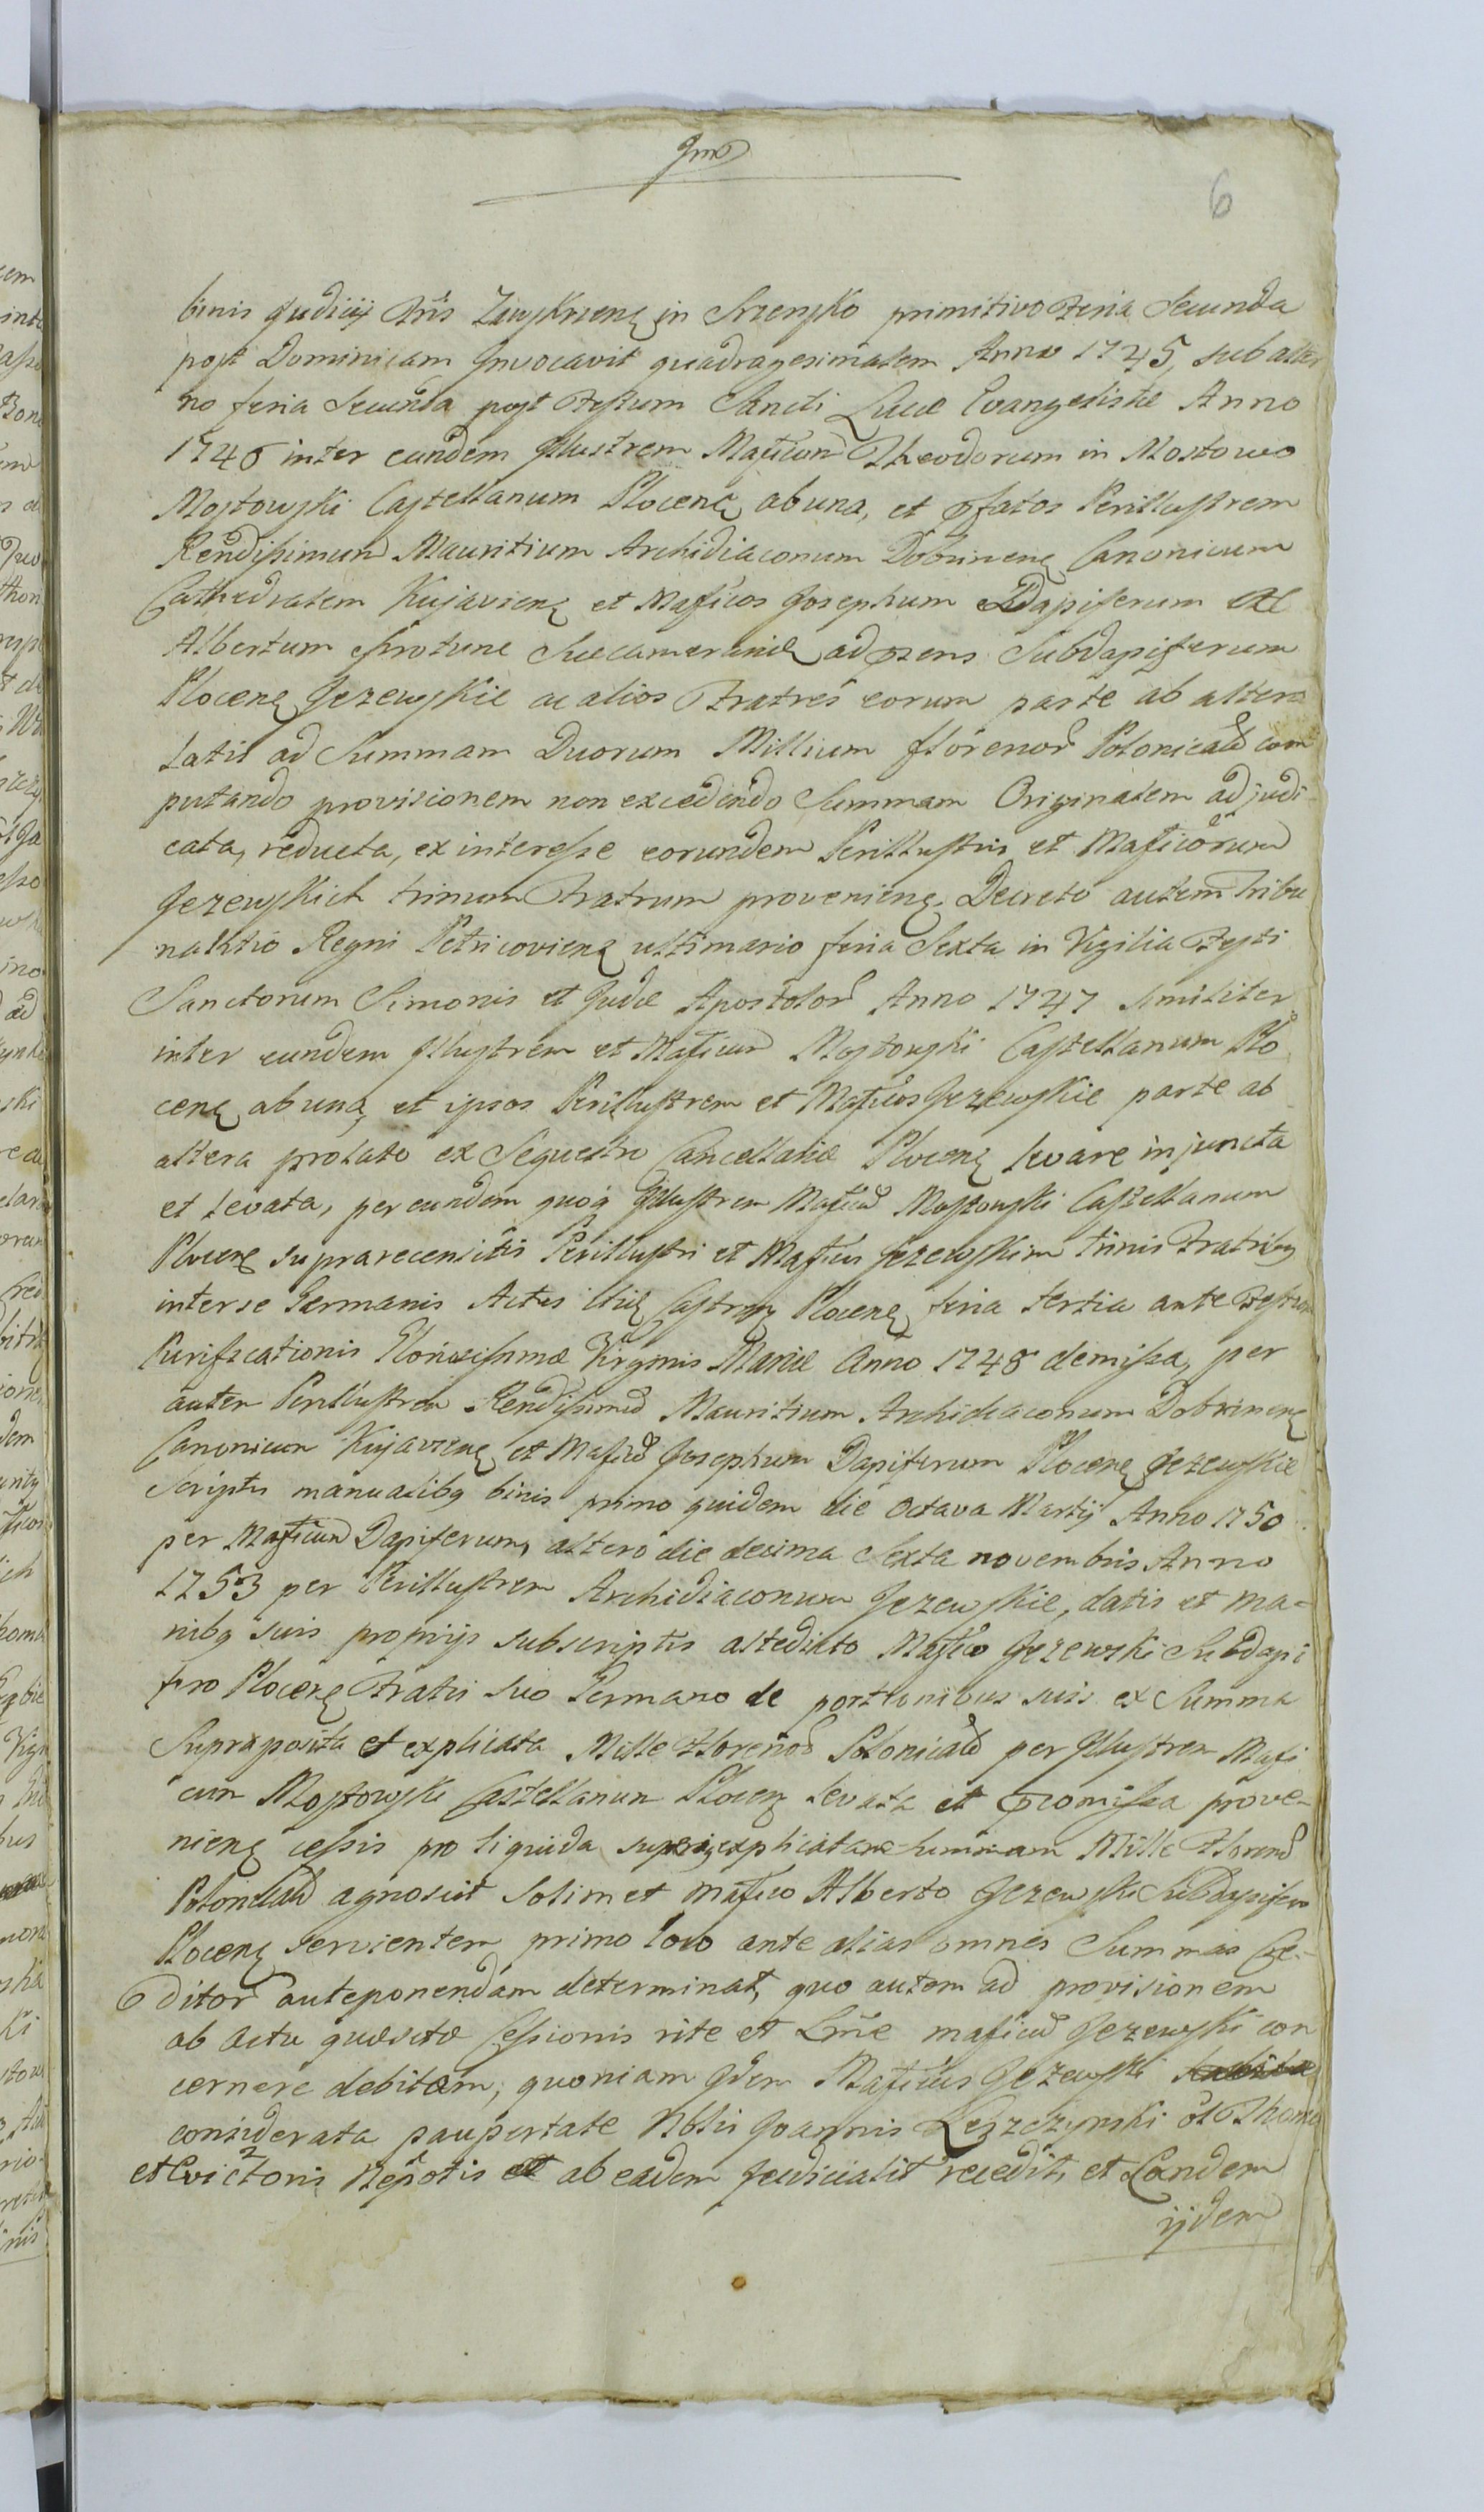 6
binis Judicij Tris Zawskrzens in Szrensko primitivo Feria Secunda
post Dominicam Invocavit quadragesimalem Anno 1745, sub alter
no feria Secunda post Festum Sancti Lucæ Evangelistæ Anno
1746 inter eundem Illustrem Mgficum Theodorum in Mostowo
Mostowski Castellanum Plocens ab una, et pfatos Perillustrem
Rendissimum Mauritium Archidiaconum Dobrinens Canonicum
Cathedralem Kujaviens et Mgficos Josephum Dapiferum Ac
Albertum protunc Succamerarid ad psens Subdapiferum
Plocens Jezewskie ac alios Fratres eorum parte ab altera
latis ad Summam Duorum Millium florenor Polonicaliu com
putando provisionem non excedendo Summam Originalem adjudi
cata, reducta, ex interesse eorundem Perillustris et Mgficorum
Jezewskich trinum Fratrum proveniens, Decreto autem Tribu
nalitio Regni Petricoviens ultimario feria Sexta in Vigilia Festi
Sanctorum Simonis et Judæ Apostolor Anno 1747 similiter
inter eundem Illustrem et Mgficum Mostowski Castellanum Plo
cens ab una, et ipsos Perillustrem et Mgficos Jezewskie parte ab
altera prolato ex Sequestro Cancellariæ Plocens levare injuncta
et levata, per eundem quoq Illustrem Mgficu Mostowski Castellanum
Plocens suprarecensitis Perillustri et Mgficis Jezewskim trinis Fratribq
inter se Germanis Actis Castren Plocens feria tertia ante Festum
Purificationis Gloriosissimæ Virginis Mariæ Anno 1748 demissa, per
autem Perillustrem Rendissimu Mauritium Archidiaconum Dobrinens
Canonicum Kujaviens et Mgficu Josephum Dapiferum Plocens Jezewskie
Scriptis manualibq binis primo quidem die Octava Martij Anno 1750
per Mgficum Dapiferum, altero die decima Sexta novembris Anno
1753 per Perillustrem Archidiaconum Jezewskie, datis et ma-
nibq suis proprijs subscriptis altedicto Mgfico Jezewski Subdapi
fero Plocens Fratri suo Germano de portionibus suis ex Summa
Supraposita et explicata Mille Florenor Polonicaliu per Illustrem Mgfi
cum Mostowski Castellanum Plocens levata et promissa prove-
niens cessis pro liquida superius explicatam summam Mille Florenor
Polonicaliu agnoscit solimet Mgfico Alberto Jezewski Subdapifero
Plocens servientem primo loco ante alias omnes Summas Cre-
ditor anteponendam determinat, quo autem ad provisionem
ab actu quæsitæ Cessionis rite et Lrme mgficu Jezewski con
cernere debitam, quoniam Idem Mgficus Jezewski
considerata paupertate Nblis Joannis Leszczynski ol Thoma
et Evictoris Nepotis ab eadem Judicialit recedit, et Eandem
ijdem